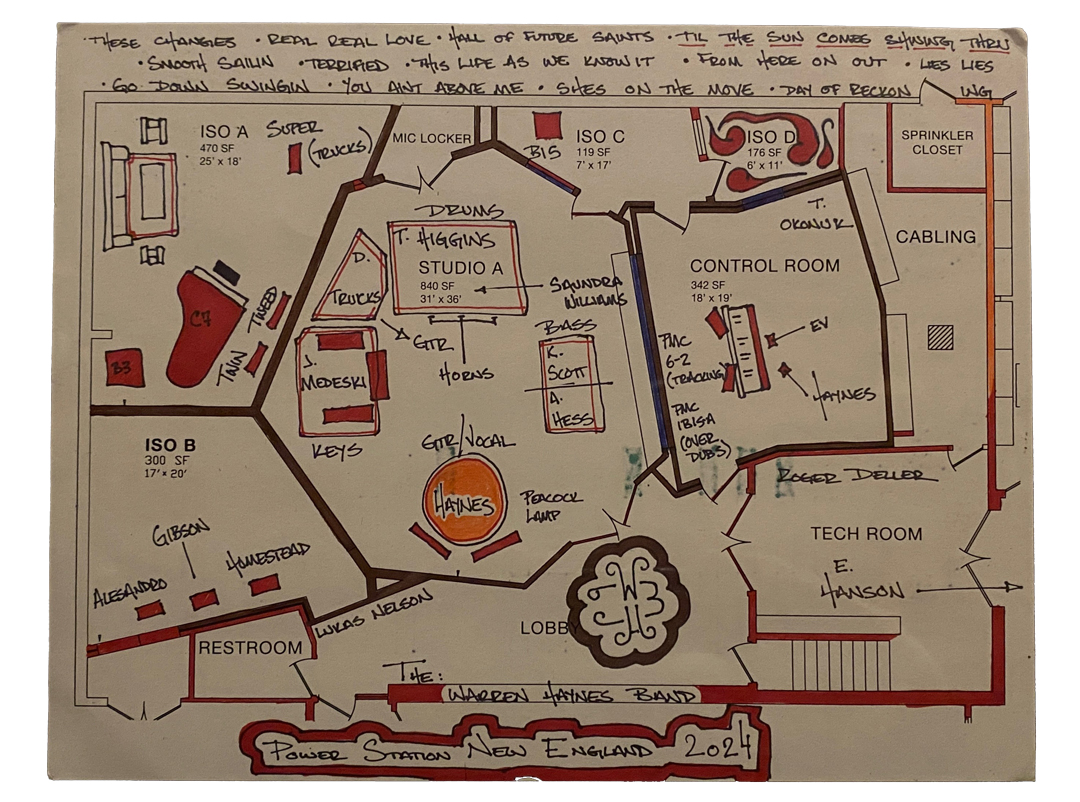 · THESE CHANGES · REAL REAL LOVE · HALL OF FUTURE SAINTS · TIL THE SUN COMES SHINING THRU
· SMOOTH SAILIN · TERRIFIED · THIS LIFE AS WE KNOW IT · FROM HERE ON OUT · LIES LIES
· GO DOWN SWINGIN · YOU AINT ABOVE ME · SHES ON THE MOVE · DAY OF RECKON ING
ISO A
470 SF
25' x 18'
SUPER
(TRUCKS)
MIC LOCKER
B15
ISO C
119 SF
7' x 17'
ISO D
176 SF
6' x 11'
SPRINKLER
CLOSET
T.
OKONUK
CABLING
DRUMS
T. HIGGINS
STUDIO A
840 SF
31' x 36'
D.
TRUCKS
SAUNDRA
WILLIAMS
CONTROL ROOM
342 SF
18' x 19'
C7
TWEED
TWIN
B3
GTR
HORNS
BASS
K.
SCOTT
A.
HESS
J.
MEDESKI
KEYS
PMC
6-2
(TRACKING)
EV
HAYNES
PMC
IBISA
(OVER
DUBS)
ISO B
300 SF
17' x 20'
GTR/VOCAL
HAYNES
PEACOCK
LAMP
ROGER DELLER
TECH ROOM
E.
HANSON
GIBSON
ALESANDRO
HOMESTEAD
LUKAS NELSON
RESTROOM
LOBBY
WHB
THE:
WARREN HAYNES BAND
POWER STATION NEW ENGLAND 2024